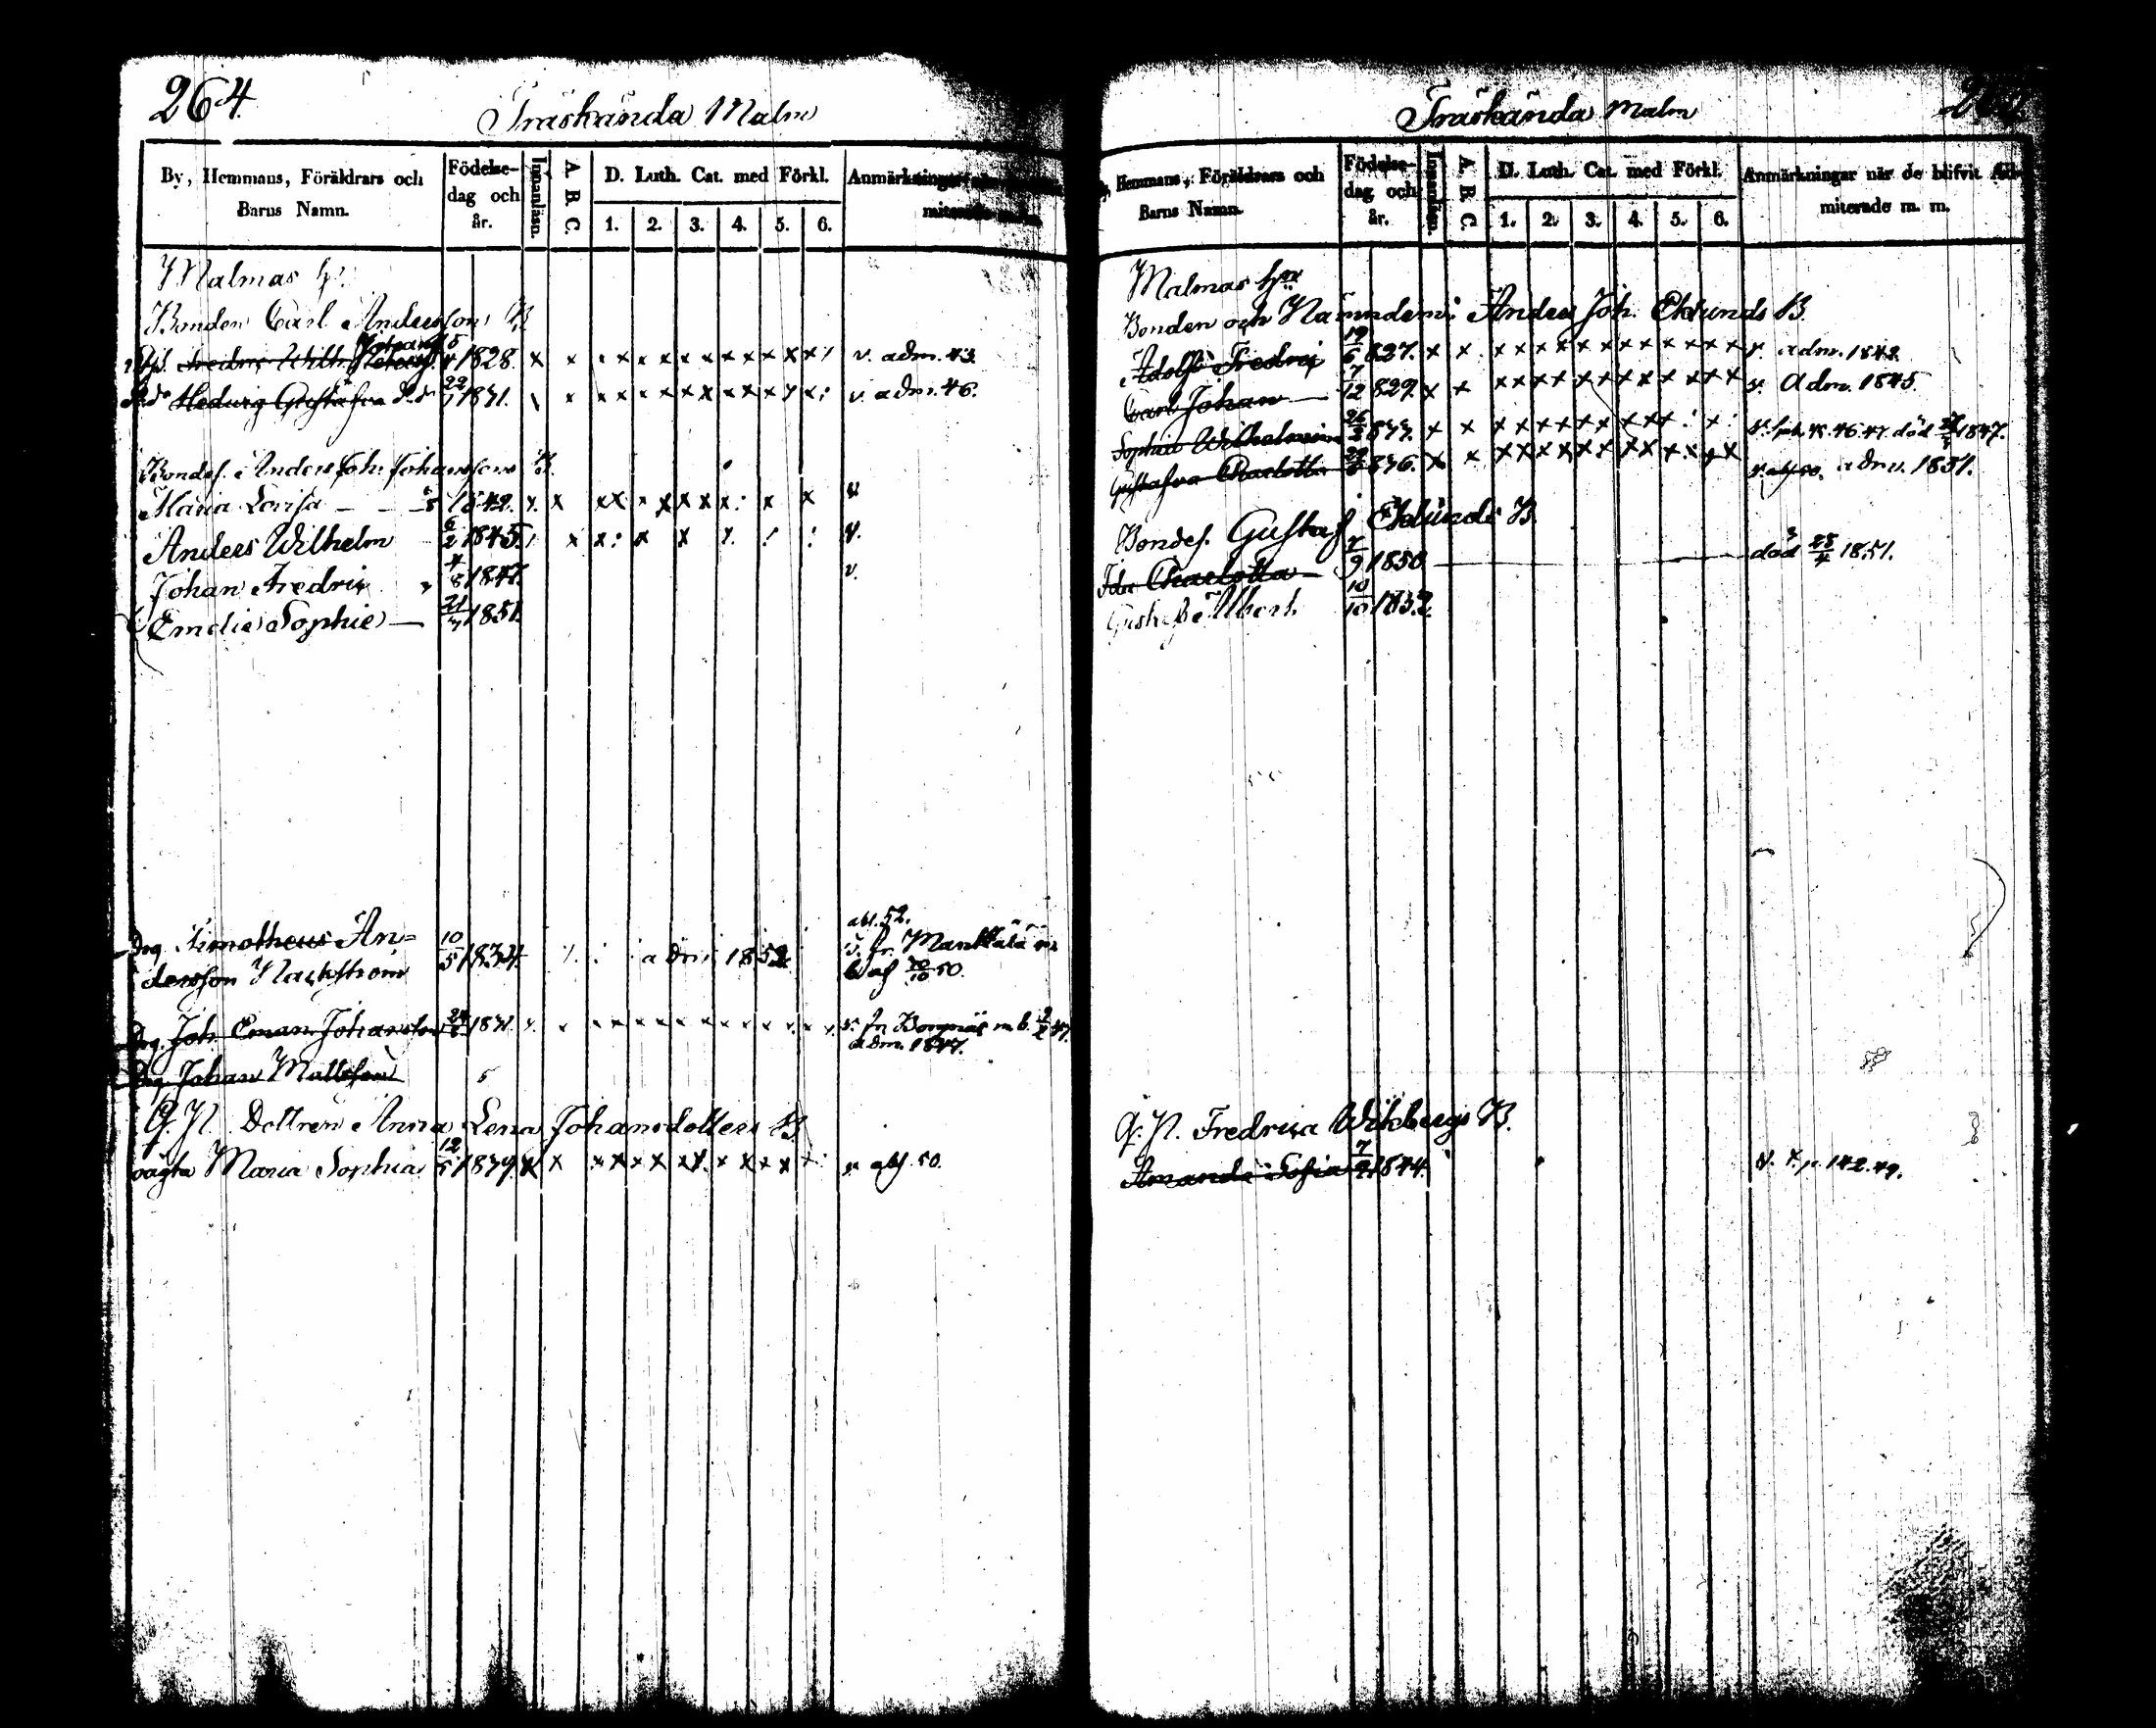 264.
Träskända Malm
By, Hemmans, Föräldrars och
Barns Namn.
Födelse-
dag och
år.
Innanläsn.
A. B. C.
D. Luth. Cat. med Förkl.
1. 2. 3. 4. 5. 6.
Anmärkningar
miterade
Malmas
Bonden Carl Anderssons B.
Fredric Wilh. 5/4 1828. x x x x x x x x x x x x v. adm. 43.
Hedvig Gustafva d:o 22/7 1831. x x x x x x x x x x x v. adm. 46.
Bondes. Anders Joh. Johanssons B.
Maria Lovisa 1842. x x x x x x x x x v
Anders Wilhelm 6/2 1845. x x : x x v.
Johan Fredric 4/8 1847. v.
Emelie Sophie 21/7 1851.
abl. 52.
Drg. Timotheus An=
dersson 10/5 1834. adm. 1852. fr. Mankkala m.
b. af 20/10 50.
Drg. Joh. Eman. Johansson 24/8 1831. x x x x x x x x x x x x fr. m. b. 47.
adm. 1847.
Drg. Johan Mattsson
Q. P. Dottren Anna Lena Johansdotters B.
oägta Maria Sophia 12/5 1839. x x x x x x x x x x x v. abs. 50.
Träskända Malm
Hemmans, Föräldrars och
Barns Namn.
Födelse-
dag och
år.
Innanläsn.
A. B. C.
D. Luth. Cat. med Förkl.
1. 2. 3. 4. 5. 6.
Anmärkningar når de blifvit Ad-
miterade m. m.
Malmas
Bonden och Nämndem: Anders Joh. Eklunds B.
Adolf Fredric 19/6 827. x x x x x x x x x x x x x x v. adm. 1842.
Carl Johan 7/12 829. x x x x x x x x x x x x x x v. Adm. 1845.
Sophia Wilhelmina 26/2 833. x x x x x x x x x x x x 45. 46. 47. död 1847.
Gustafva Charlotta 836. x x x x x x x x x x x x x x adm. 1851.
Bondes. Gustaf Eklunds B.
Ida Charlotta 7/9 1850. död 28/4 1851.
Albert 10/10 1852.
Q. P. Fredrica Wikbergs B.
Amanda Sofia 7/9 1844. p. 142. 49.